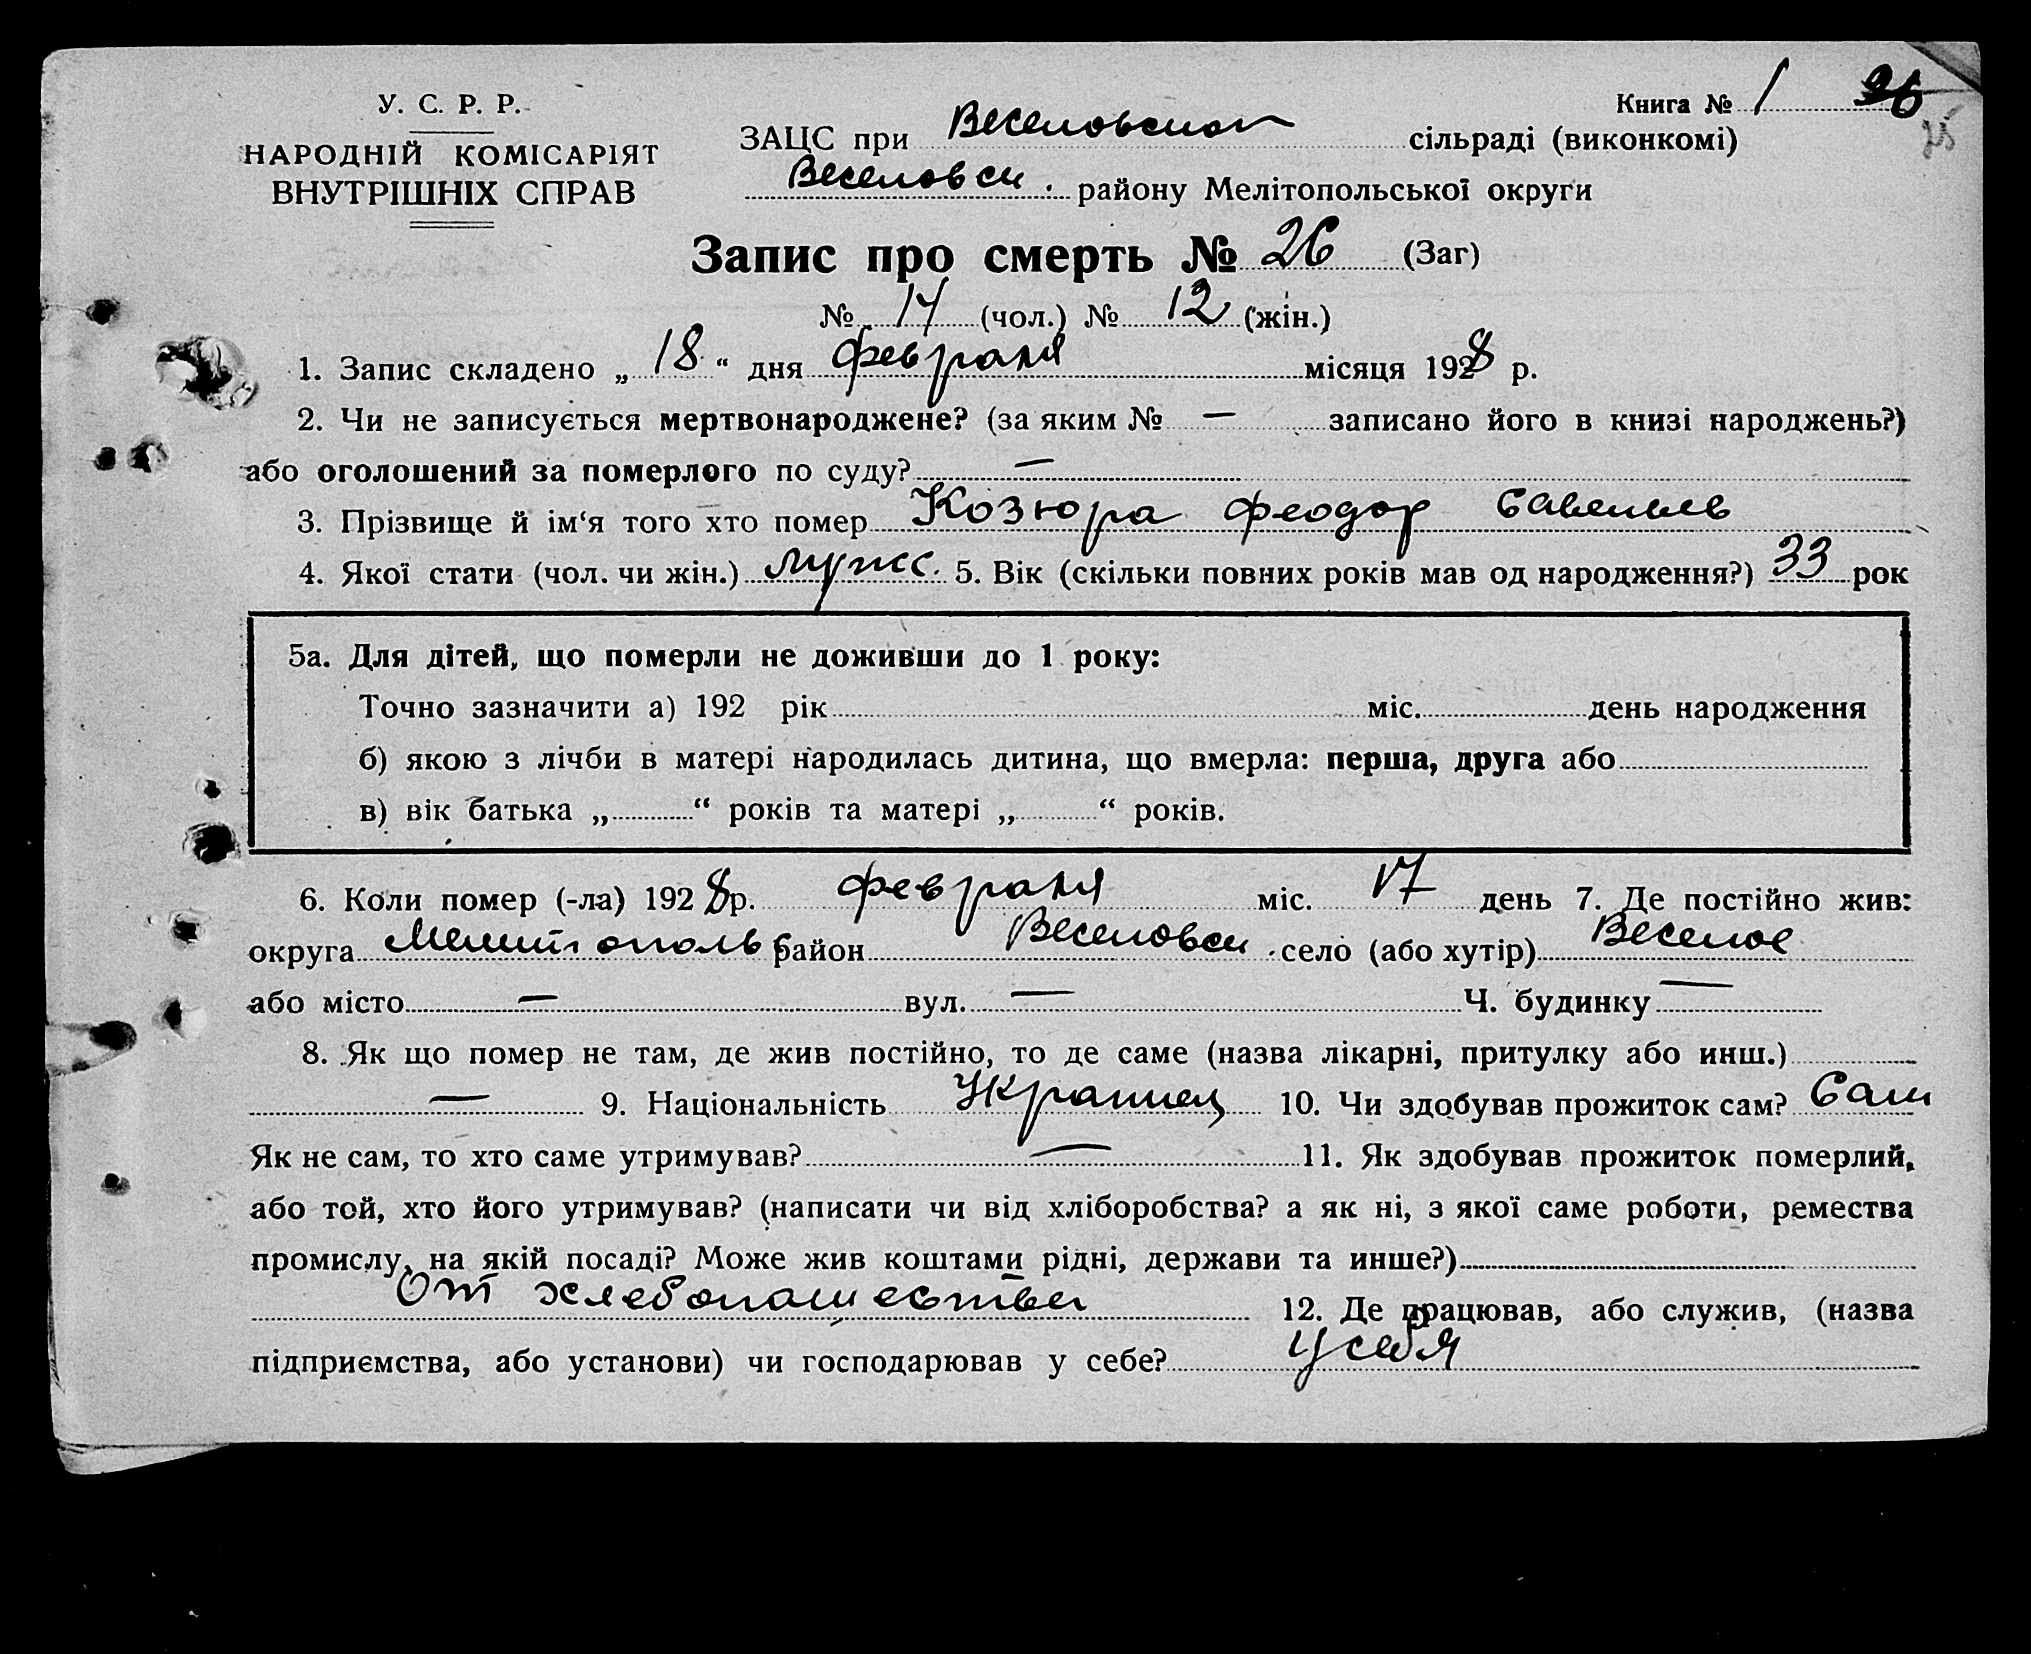 Книга № 1 26
25
У. С. Р. Р.
НАРОДНІЙ КОМІСАРІЯТ
ВНУТРІШНІХ СПРАВ
ЗАЦС при Веселовском сільраді (виконкомі)
Веселовск. району Мелітопольської округи
Запис про смерть № 26 (Заг)
№ 14 (чол.) № 12 (жін.)
1. Запис складено „ 18 “ дня февраля місяця 1928 р.
2. Чи не записується мертвонароджене? (за яким № — записано його в книзі народжень?)
або оголошений за померлого по суду? —
3. Прізвище й ім‘я того хто помер Козюра Феодор Савельев
4. Якої стати (чол. чи жін.) мужс. 5. Вік (скільки повних років мав од народження?) 33 рок
5а. Для дітей, що померли не доживши до 1 року:
Точно зазначити а) 192 рік міс. день народження
б) якою з лічби в матері народилась дитина, що вмерла: перша, друга або
в) вік батька „ “ років та матері „ “ років.
6. Коли помер (-ла) 1928 р. февраля міс. 17 день 7. Де постійно жив:
округа Мелитополь район Веселовск. село (або хутір) Веселое
або місто — вул. — Ч. будинку —
8. Як що помер не там, де жив постійно, то де саме (назва лікарні, притулку або инш.)
— 9. Національність Украинец 10. Чи здобував прожиток сам? Сам
Як не сам, то хто саме утримував? — 11. Як здобував прожиток померлий,
або той, хто його утримував? (написати чи від хліборобства? а як ні, з якої саме роботи, ремества
промислу, на якій посаді? Може жив коштами рідні, держави та инше?)
От хлебопашества 12. Де працював, або служив, (назва
підприємства, або установи) чи господарював у себе? У себя